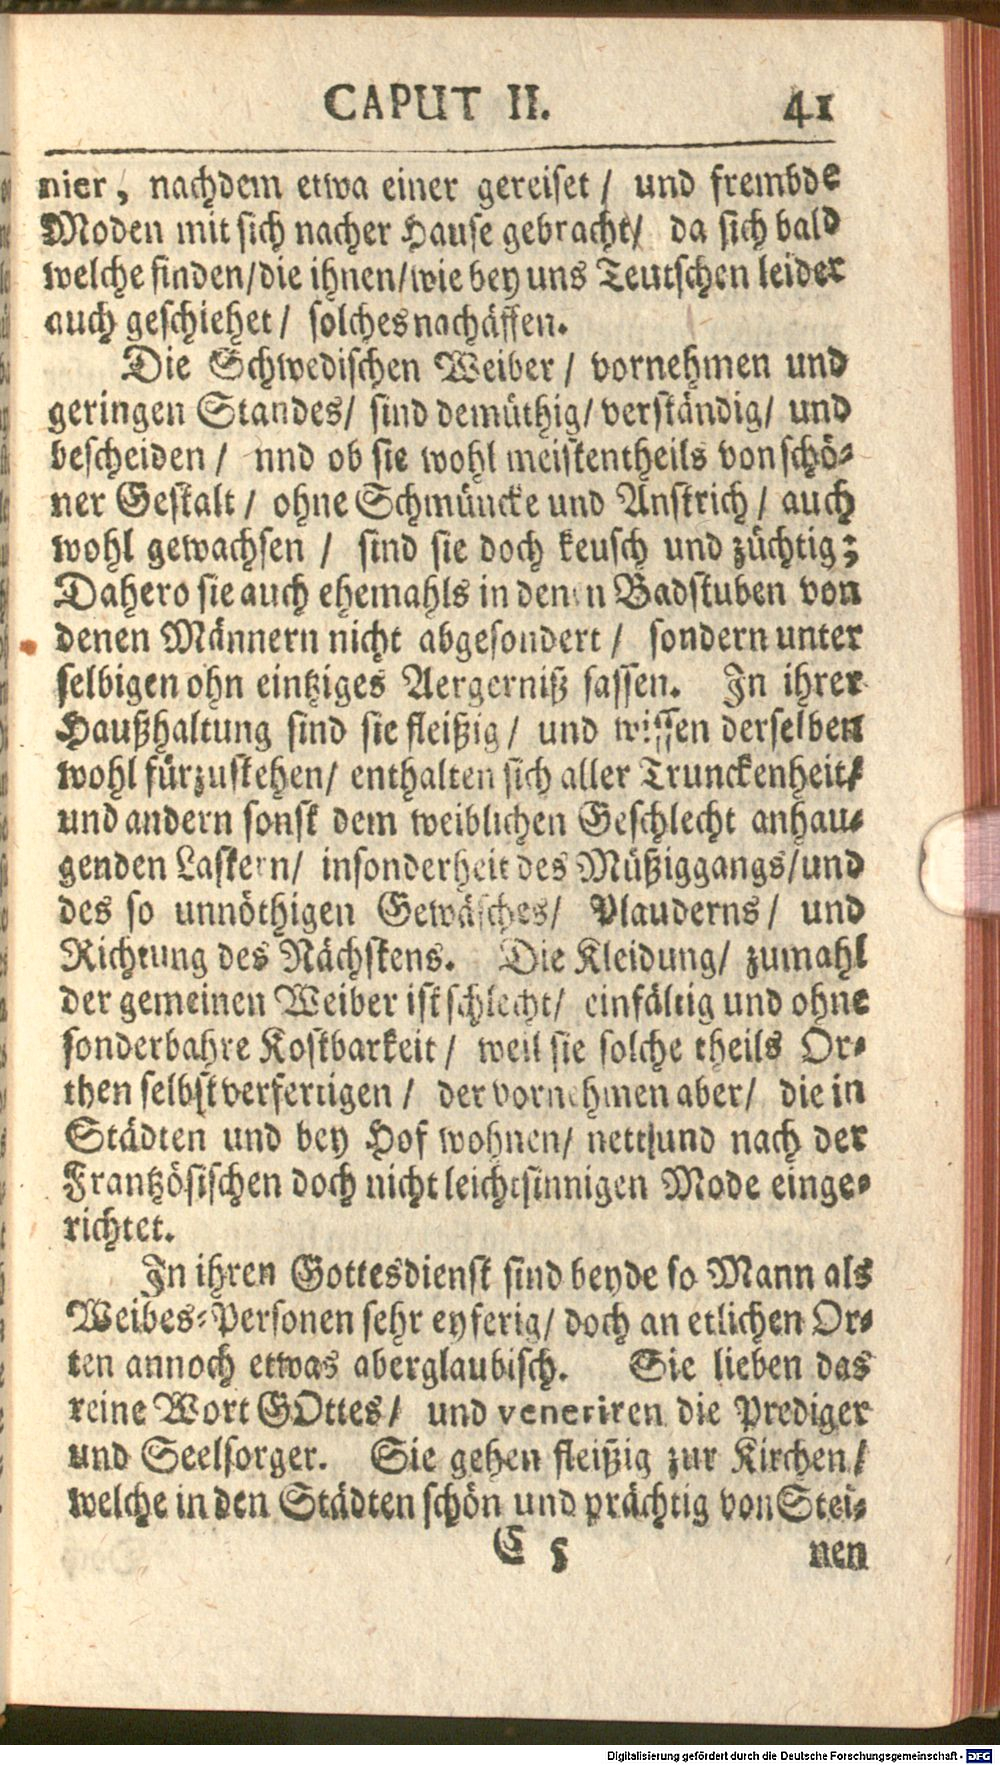 CAPUT II. 41
nier, nachdem etwa einer gereiset / und frembde
Moden mit sich nacher Hause gebracht/ da sich bald
welche finden/die ihnen/wie bey uns Teutschen leider
auch geschiehet / solches nachäffen.
Die Schwedischen Weiber / vornehmen und
geringen Standes/ sind demüthig/ verständig/ und
bescheiden / nnd ob sie wohl meistentheils von schö-
ner Gestalt / ohne Schmüncke und Anstrich / auch
wohl gewachsen / sind sie doch keusch und züchtig;
Dahero sie auch ehemahls in denen Badstuben von
denen Männern nicht abgesondert / sondern unter
selbigen ohn eintziges Aergerniß sassen. In ihrer
Haußhaltung sind sie fleißig / und wissen derselben
wohl fürzustehen/ enthalten sich aller Trunckenheit/
und andern sonst dem weiblichen Geschlecht anhau-
genden Lastern/ insonderheit des Müßiggangs/und
des so unnöthigen Gewäsches/ Plauderns/ und
Richtung des Nächstens. Die Kleidung/ zumahl
der gemeinen Weiber ist schlecht/ einfältig und ohne
sonderbahre Kostbarkeit / weil sie solche theils Or-
then selbst verfertigen / der vornehmen aber/ die in
Städten und bey Hof wohnen/ nett und nach der
Frantzösischen doch nicht leichtsinnigen Mode einge-
richtet.
In ihren Gottesdienst sind beyde so Mann als
Weibes-Personen sehr eyferig/ doch an etlichen Or-
ten annoch etwas aberglaubisch. Sie lieben das
reine Wort GOttes/ und veneriren die Prediger
und Seelsorger. Sie gehen fleißig zur Kirchen/
welche in den Städten schön und prächtig von Stei-
C 5 nen
Digitalisierung gefördert durch die Deutsche Forschungsgemeinschaft - DFG